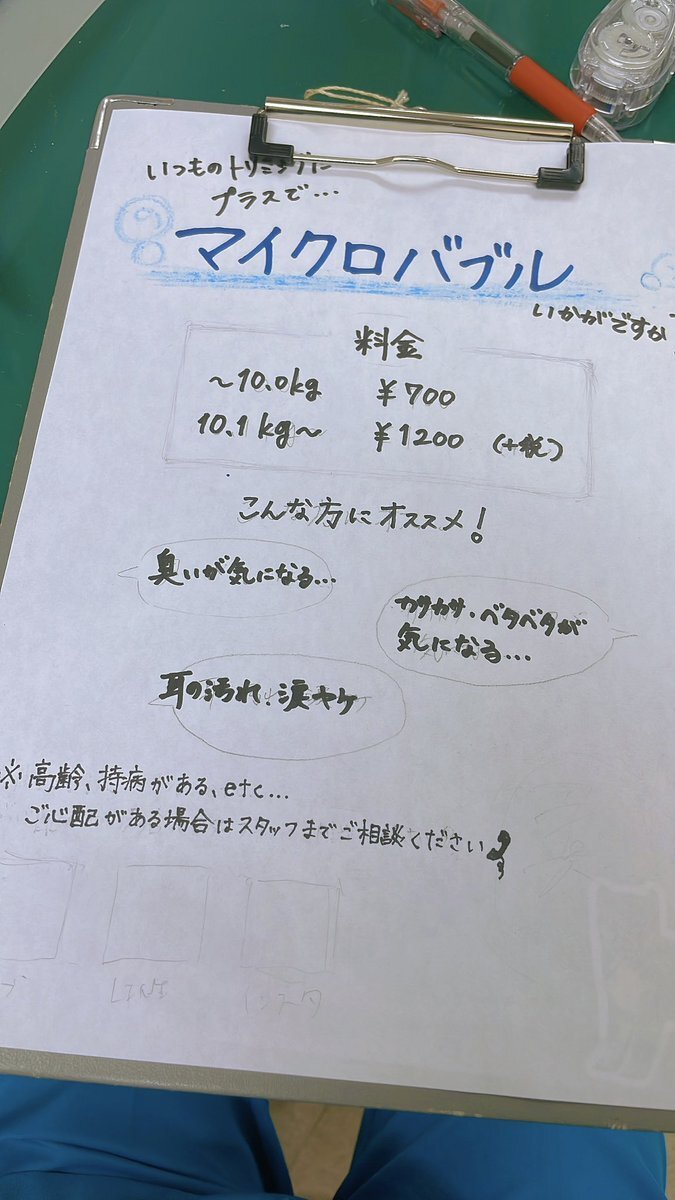 いつものトリミングに
プラスで…
マイクロバブル
いかがですか
料金
～10.0kg ¥700
10.1kg～ ¥1200 (+税)
こんな方にオススメ!
臭いが気になる…
カサカサ・ベタベタが
気になる…
耳の汚れ、涙ヤケ
※高齢、持病がある、etc…
ご心配がある場合はスタッフまでご相談ください
LINE